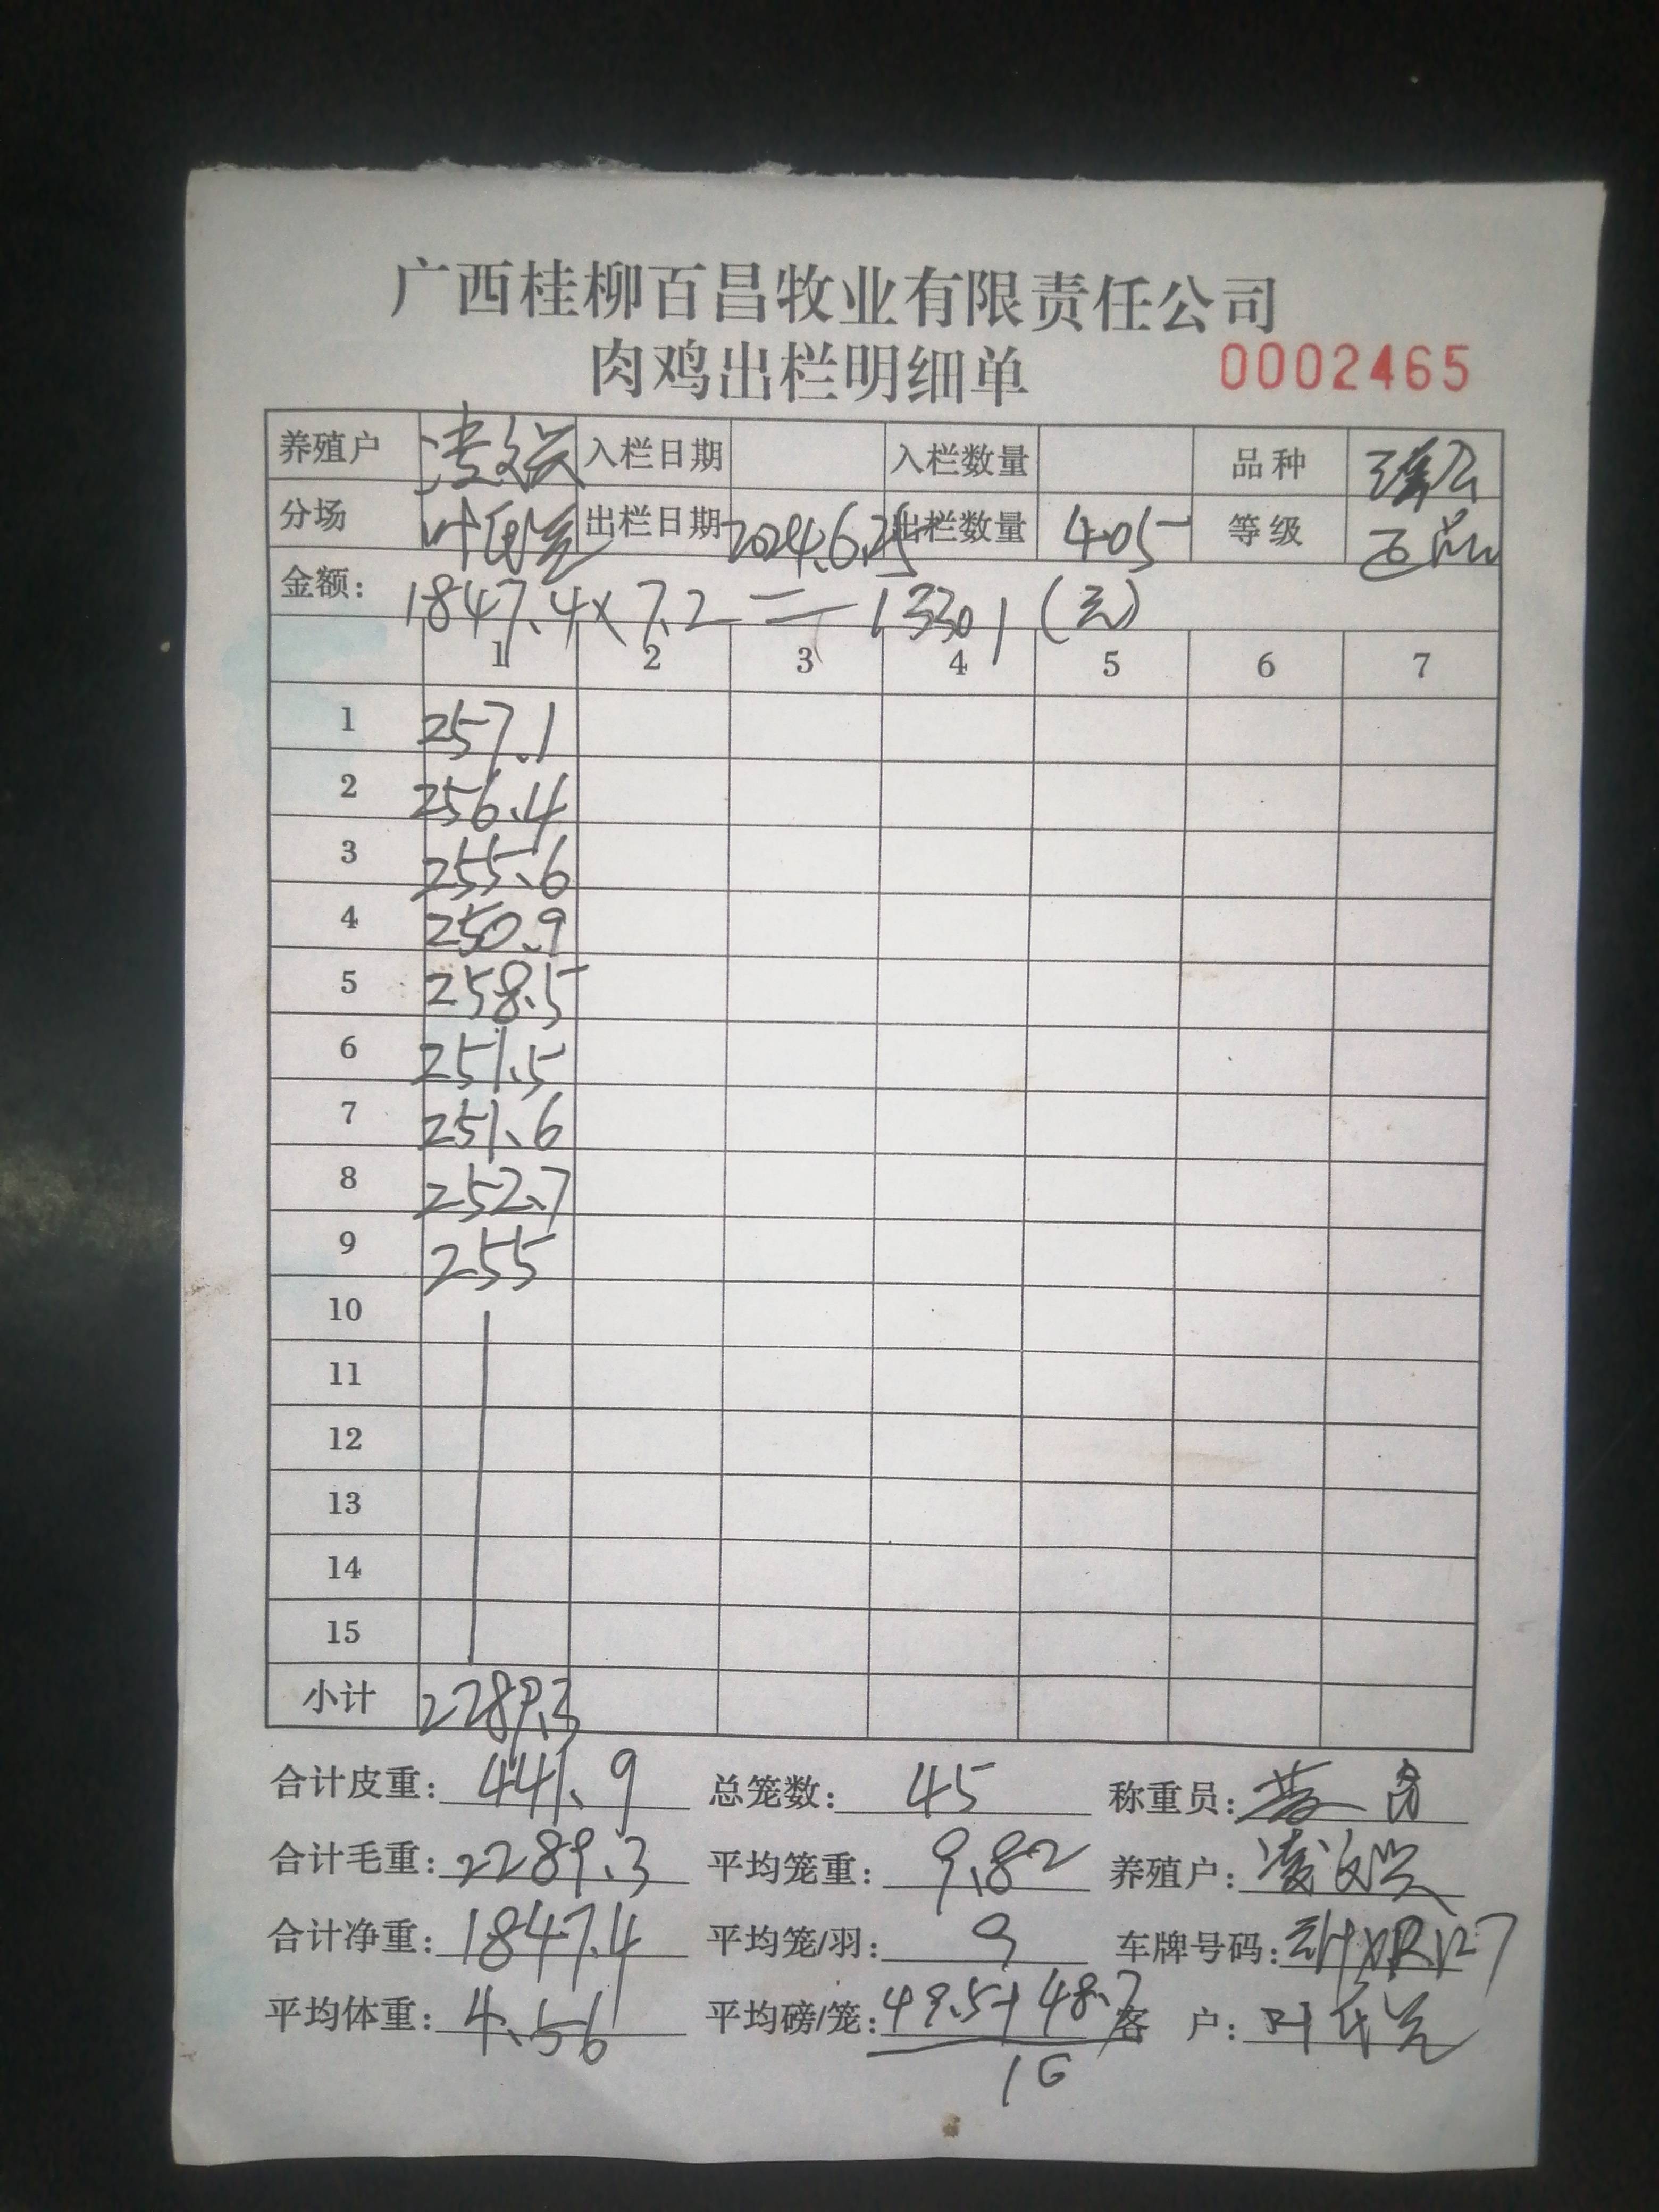 广西桂柳百昌牧业有限责任公司
肉鸡出栏明细单 0002465
养殖户 凌文兴 入栏日期 入栏数量 品种
分场 出栏日期 2024.6.25 出栏数量 405 等级
金额: 1847.4×7.2=13301(元)
1 2 3 4 5 6 7
1 257.1
2 256.4
3 255.6
4 250.9
5 258.5
6 251.5
7 251.6
8 252.7
9 255
10
11
12
13
14
15
小计 2289.3
合计皮重: 441.9 总笼数: 45 称重员:
合计毛重: 2289.3 平均笼重: 9.82 养殖户: 凌文兴
合计净重: 1847.4 平均笼/羽: 9 车牌号码:
平均体重: 4.56 平均磅/笼: 49.5+48.7 客 户:
10